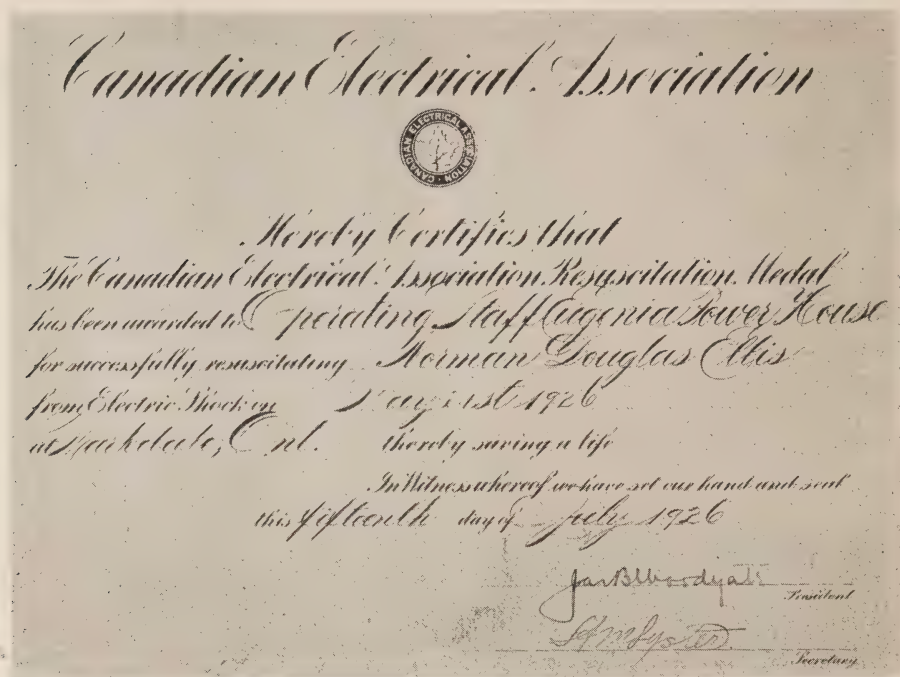 Canadian Electrical Association
CANADIAN ELECTRICAL ASSOCIATION
Hereby Certifies that
The Canadian Electrical Association Resuscitation Medal
has been awarded to Operating Staff Eugenia Power House
for successfully resuscitating Norman Douglas Ellis
from Electric Shock on May 1st 1926
at Markdale, Ont. thereby saving a life
In Witness whereof we have set our hand and seal
this fifteenth day of July 1926
Jas B Woodyatt
President
Secretary